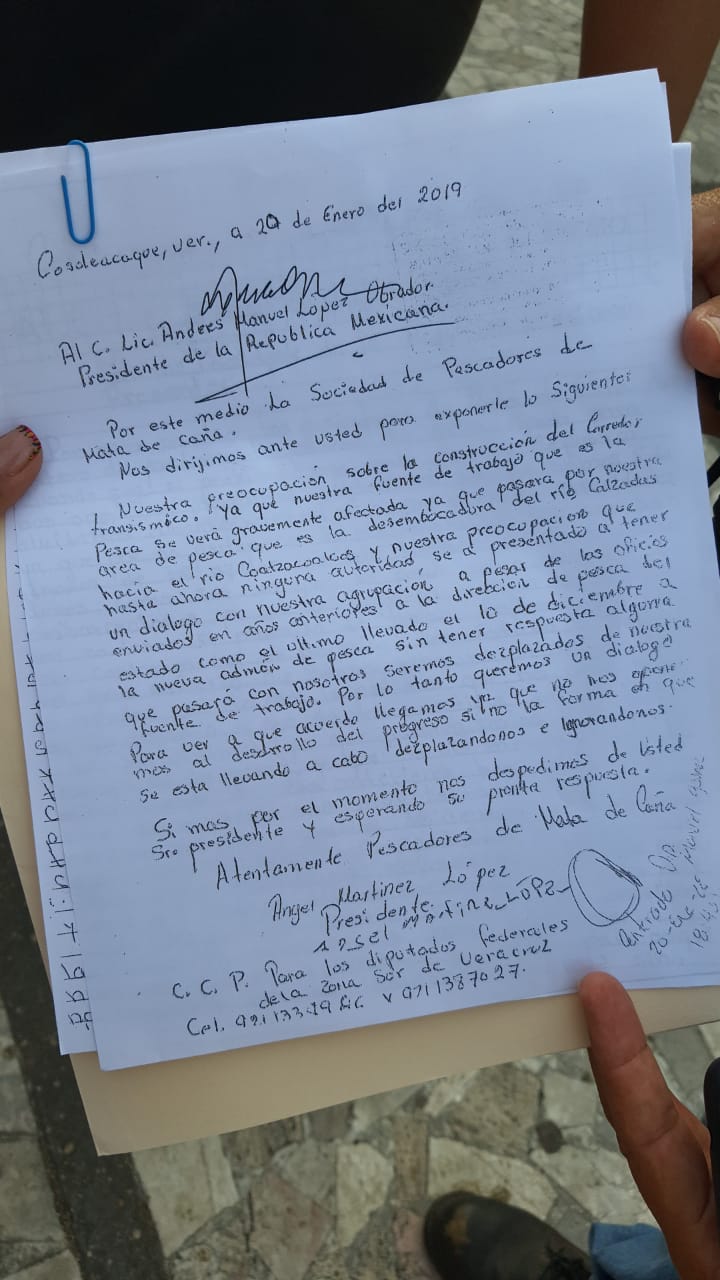 Cosoleacaque, Ver., a 20 de Enero del 2019
Al C. Lic. Andres Manuel Lopez Obrador.
Presidente de la Republica Mexicana.
Por este medio La Sociedad de Pescadores de
Mata de Caña.
Nos dirijimos ante usted para exponerle lo Siguiente:
Nuestra preocupación sobre la construcción del Corredor
transismico. Ya que nuestra fuente de trabajo que es la
Pesca se verá gravemente afectada ya que pasara por nuestra
area de pesca que es la desembocadura del río Calzadas
hacía el río Coatzacoalcos y nuestra preocupacion que
hasta ahora ninguna autoridad se a presentado a tener
un dialogo con nuestra agrupación a pesar de las oficios
enviados en años anteriores a la direccion de pesca del
estado como el ultimo llevado el 10 de diciembre a
la nueva admón de pesca sin tener respuesta alguna
que pasará con nosotros seremos dezplazados de nuestra
fuente de trabajo. Por lo tanto queremos un dialogo
Para ver a que acuerdo llegamos ya que no nos opone-
mos al desarrollo del progreso si no la forma en que
se esta llevando a cabo dezplazandonos e Ignorandonos.
Si mas por el momento nos despedimos de Usted
Sro presidente y esperando su pronta respuesta.
Atentamente Pescadores de Mata de Caña
Angel Martinez López
Presidente.
Angel Martinez López
C. C. P. Para los diputados federales
dela zona Sur de Veracruz
Cel. 921133 y 9211387027.